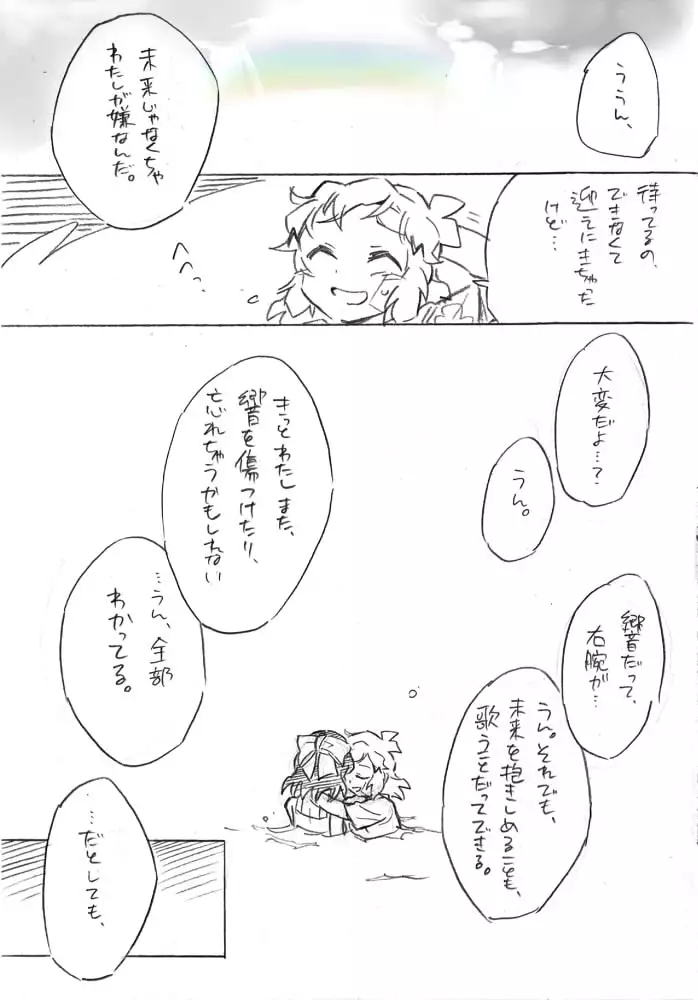 ううん、
未来じゃなくちゃ
わたしが嫌なんだ。
待ってるの、
できなくて
迎えにきちゃった
けど…
へへっ
大変だよ…?
うん。
きっとわたしまた、
響を傷つけたり、
忘れちゃうかもしれない
…うん、全部
わかってる。
響だって、
右腕が…
うん。それでも、
未来を抱きしめることも、
歌うことだってできる。
…だとしても、